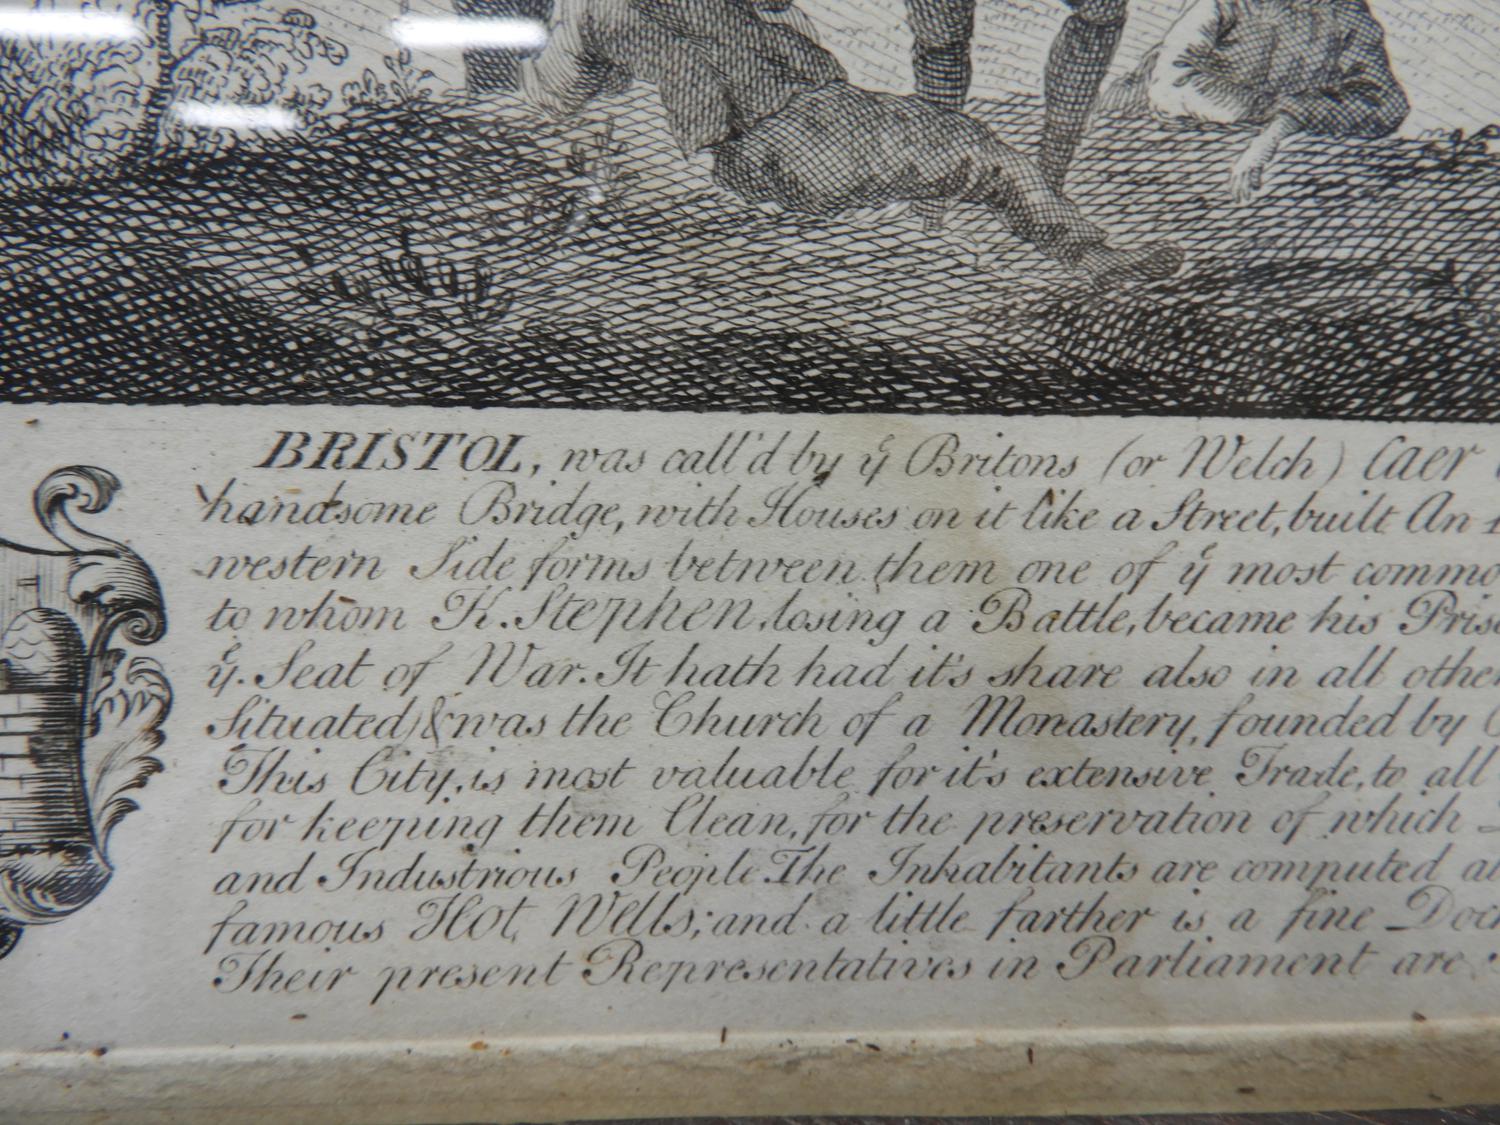 BRISTOL, was call'd by yͤ Britons (or Welch) Caer
handsome Bridge, with Houses on it like a Street, built An
western Side forms between them one of yͤ most commo
to whom K. Stephen, losing a Battle, became his Priso
yͤ. Seat of War. It hath had it's share also in all other
Situated) & was the Church of a Monastery, founded by
This City, is most valuable for it's extensive Trade, to all
for keeping them Clean, for the preservation of which
and Industrious People. The Inhabitants are computed at
famous Hot Wells; and a little farther is a fine Doc
Their present Representatives in Parliament are